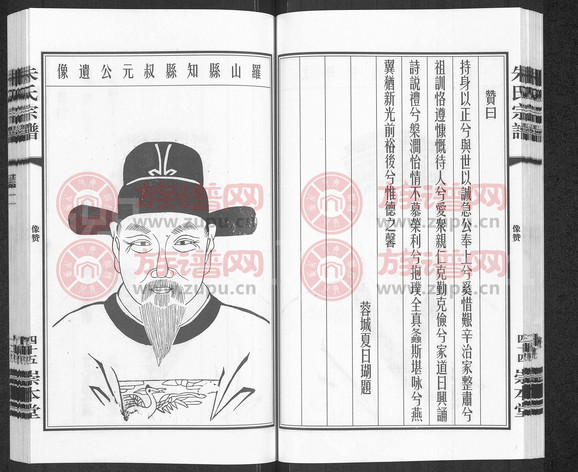 贊曰
持身以正兮與世以誠急公奉上兮奚惜艱辛治家整肅兮
祖訓恪遵慷慨待人兮愛衆親仁克勤克儉兮家道日興誦
詩說禮兮槃澗怡情不慕榮利兮抱璞全真螽斯堪咏兮燕
翼猶新光前裕後兮惟德之馨
蓉城夏日瑚題
朱氏宗譜
像贊
崇本堂
羅山縣知縣叔元公遺像
朱氏宗譜
像贊
崇本堂
族谱网
www.zupu.cn
族谱网
www.zupu.cn
族谱网
www.zupu.cn
族谱网
www.zupu.cn